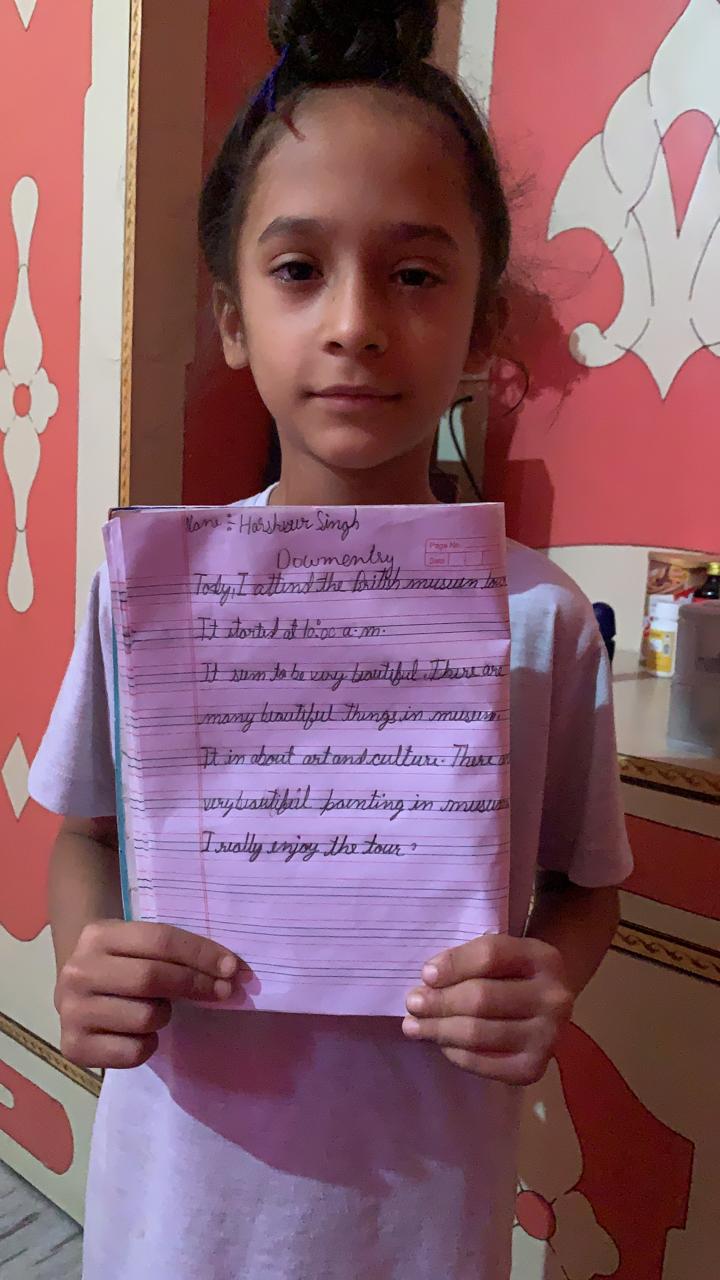 Name :- Harsheer Singh
Page No.
Date
Dowmentry
Tody, I attend the British museum tour
It started at 10:00 a.m.
It sem to be very beautiful. There are
many beautiful things in museum.
It in about art and culture. There
very beautiful painting in museum
I really enjoy the tour